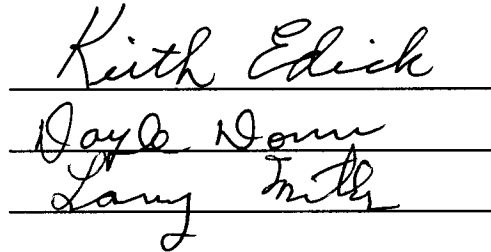 Keith Edick
Doyle Dorn
Larry Smith